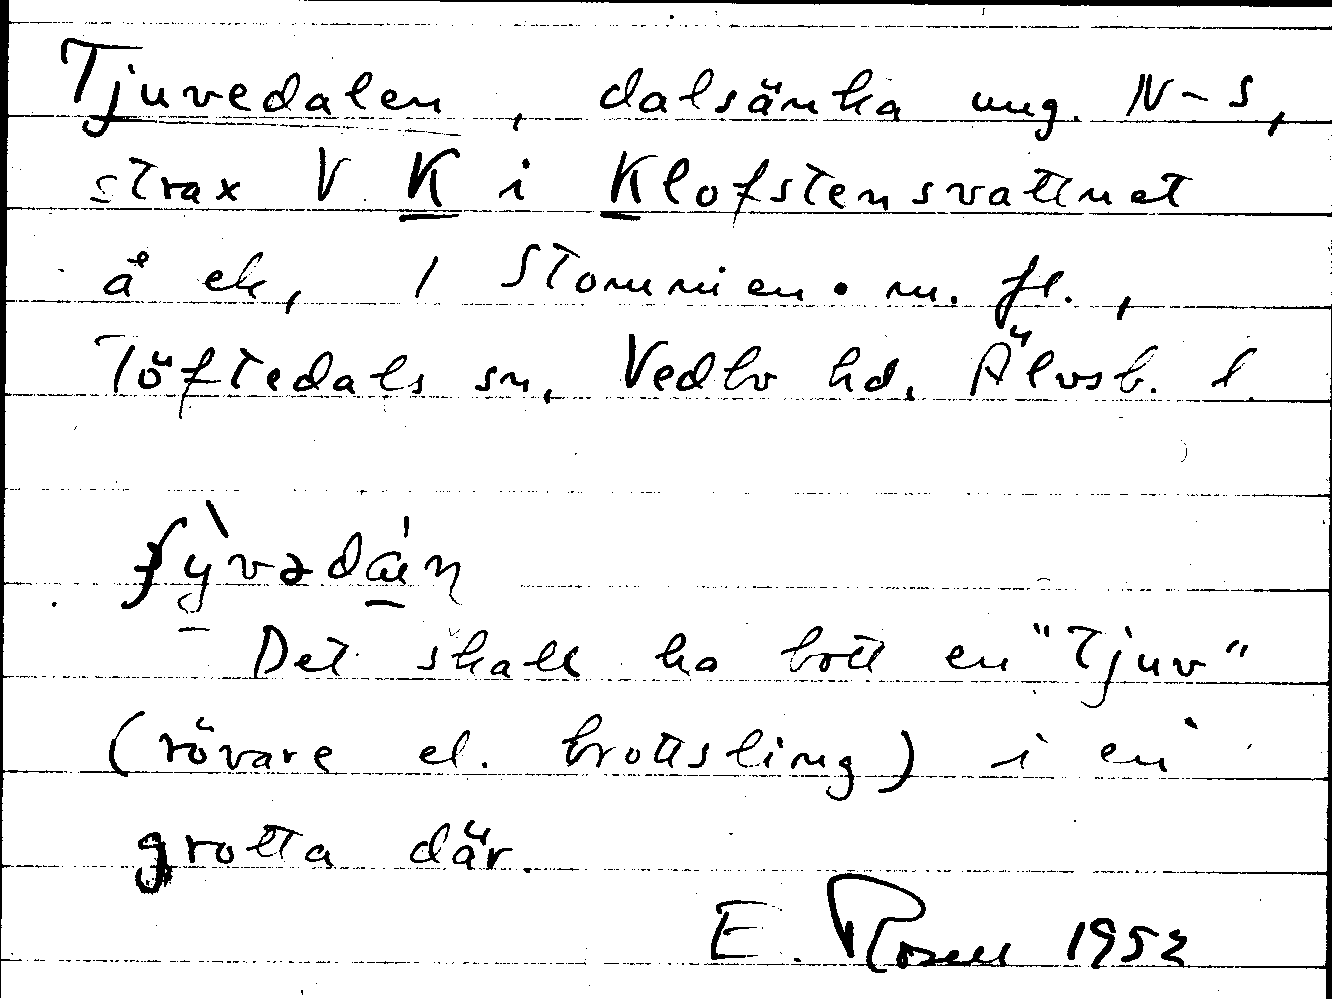 Tjuvedalen, dalsänka ung. N-S,
strax V K i Klofstensvattnet
å ek, 1 Stommen • m. fl.,
Töftedals sn, Vedbo hd. Älvsb. l.
Det skall ha bott en "Tjuv"
(rövare el. brottsling) i en
grotta där.
E. Rosell 1952